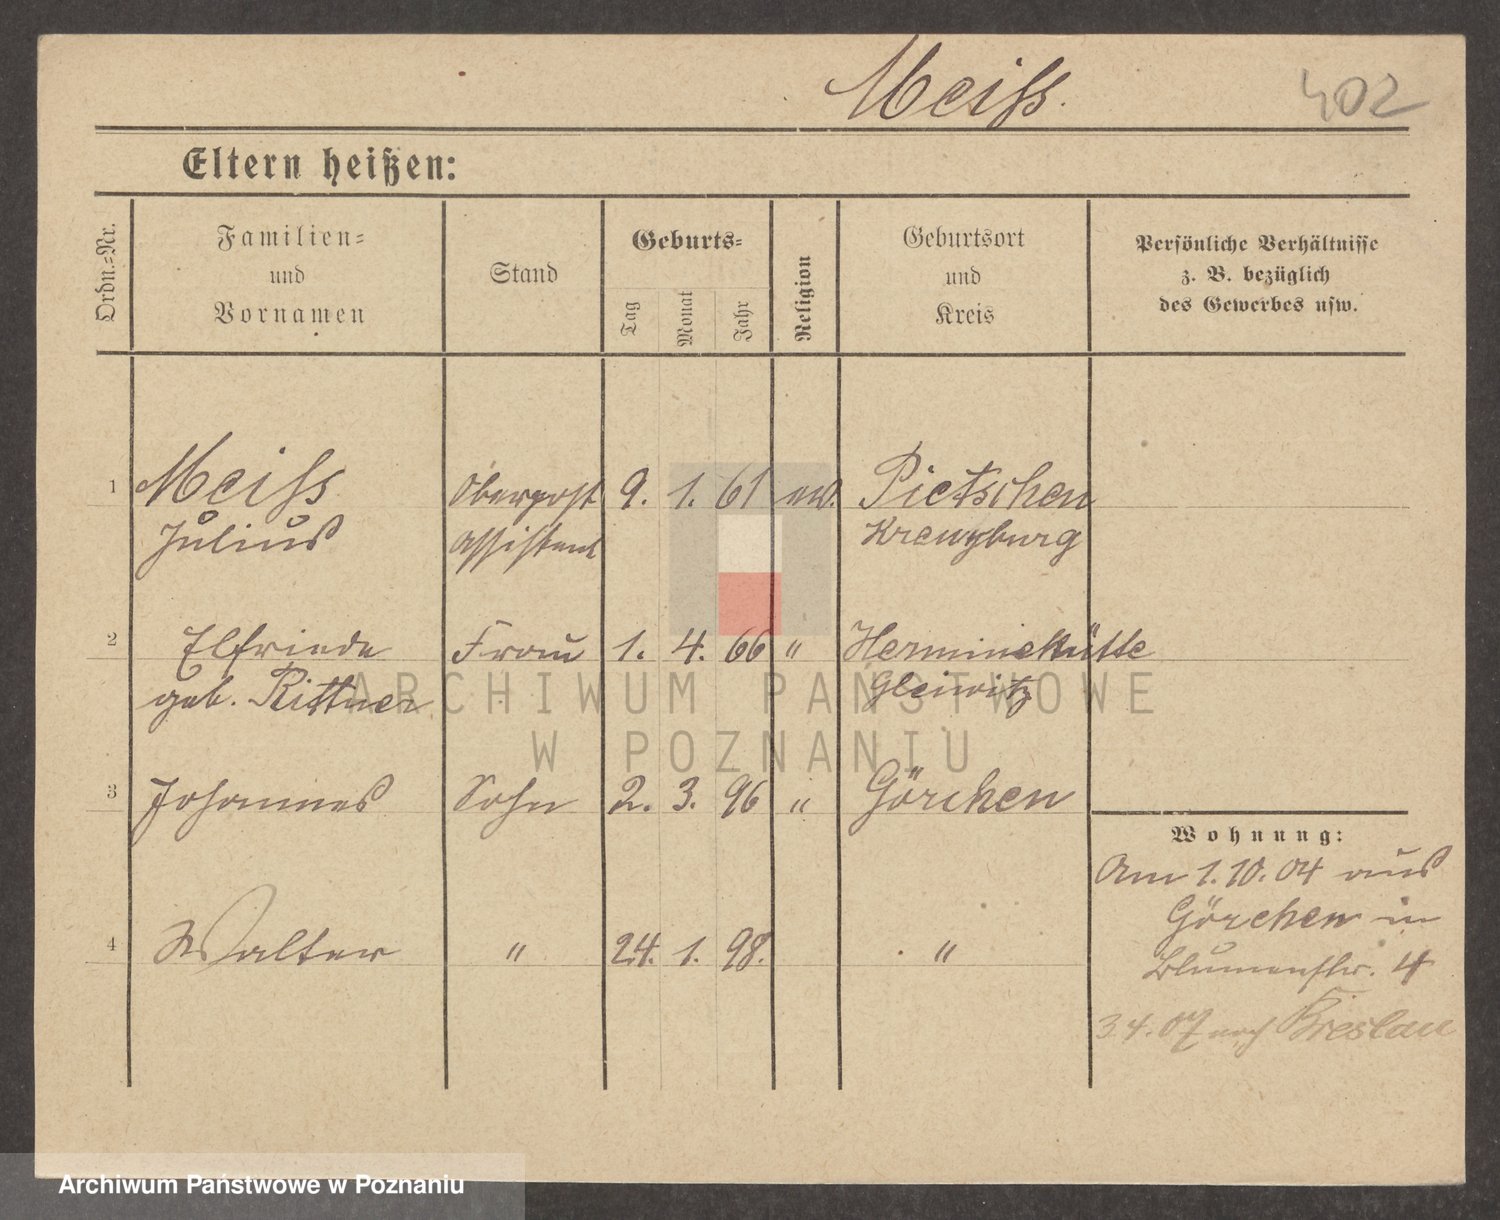 Meiss.
402
Eltern heißen:
Ordn.-Nr.
Familien-
und
Vornamen
Stand
Geburts-
Tag
Monat
Jahr
Religion
Geburtsort
und
Kreis
Persönliche Verhältnisse
z. B. bezüglich
des Gewerbes usw.
1 Meiss Oberpost 9. 1. 61 ew. Pietschen
Julius assistent Kreuzburg
2 Elfriede Frau 1. 4. 66 " Herminehütte
geb. Rittner Gleiwitz
3 Johannes Sohn 2. 3. 96 " Görchen
4 Walter " 24. 1. 98. "
Wohnung:
Am 1.10.04 aus
Görchen in
Blumenstr. 4
3.4.07 nach Breslau
ARCHIWUM PAŃSTWOWE
W POZNANIU
Archiwum Państwowe w Poznaniu